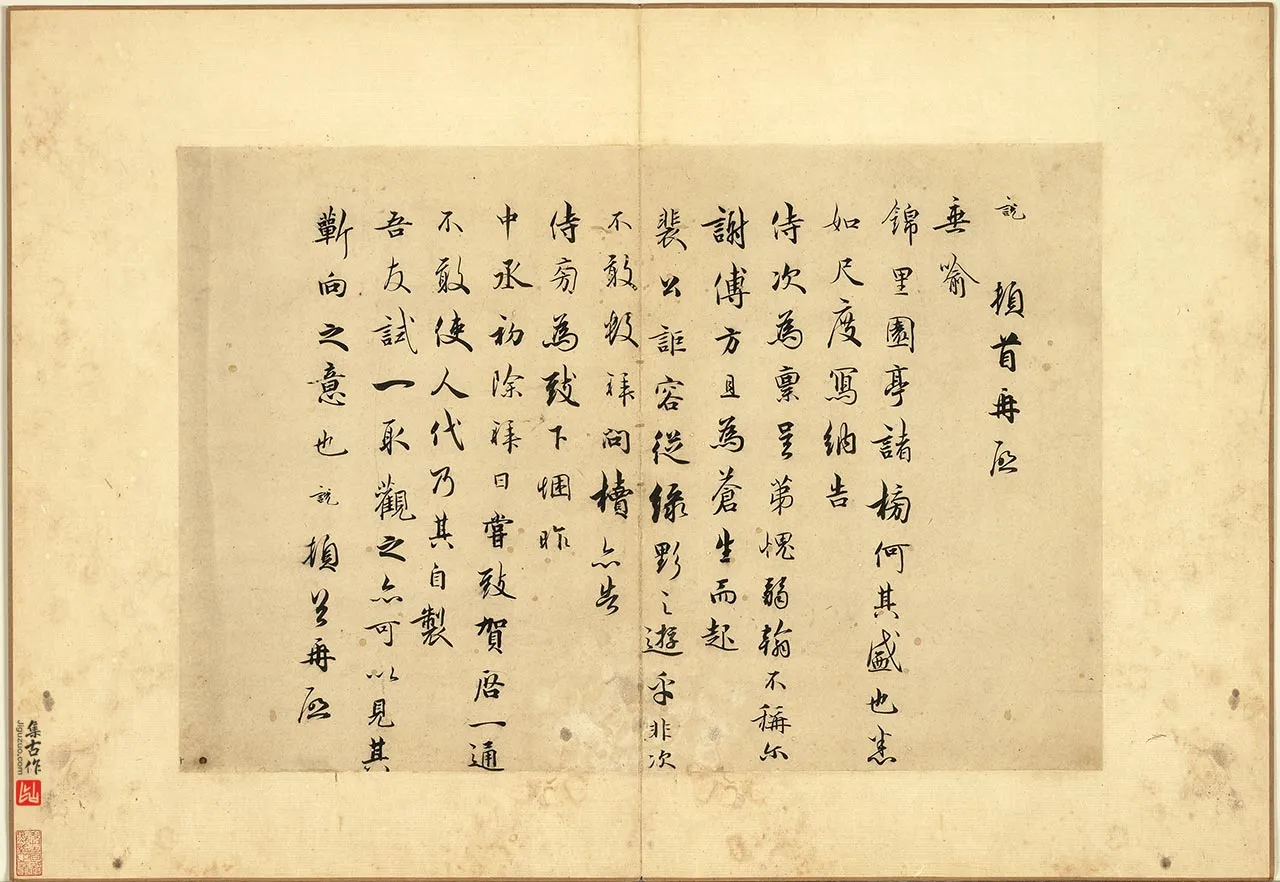 說頓首再啓
垂喻
錦里園亭諸榜何其盛也悉
如尺度寫納告
侍次為稟呈第愧弱翰不稱尔
謝傅方且為蒼生而起
裴公詎容從綠野之遊乎非次
不敢數拜問櫝亦告
侍旁為致下悃昨
中丞初除拜日嘗致賀啓一通
不敢使人代乃其自製
吾友試一取觀之亦可以見其
蘄向之意也說頓首再啓
集古作
jiguzuo.com